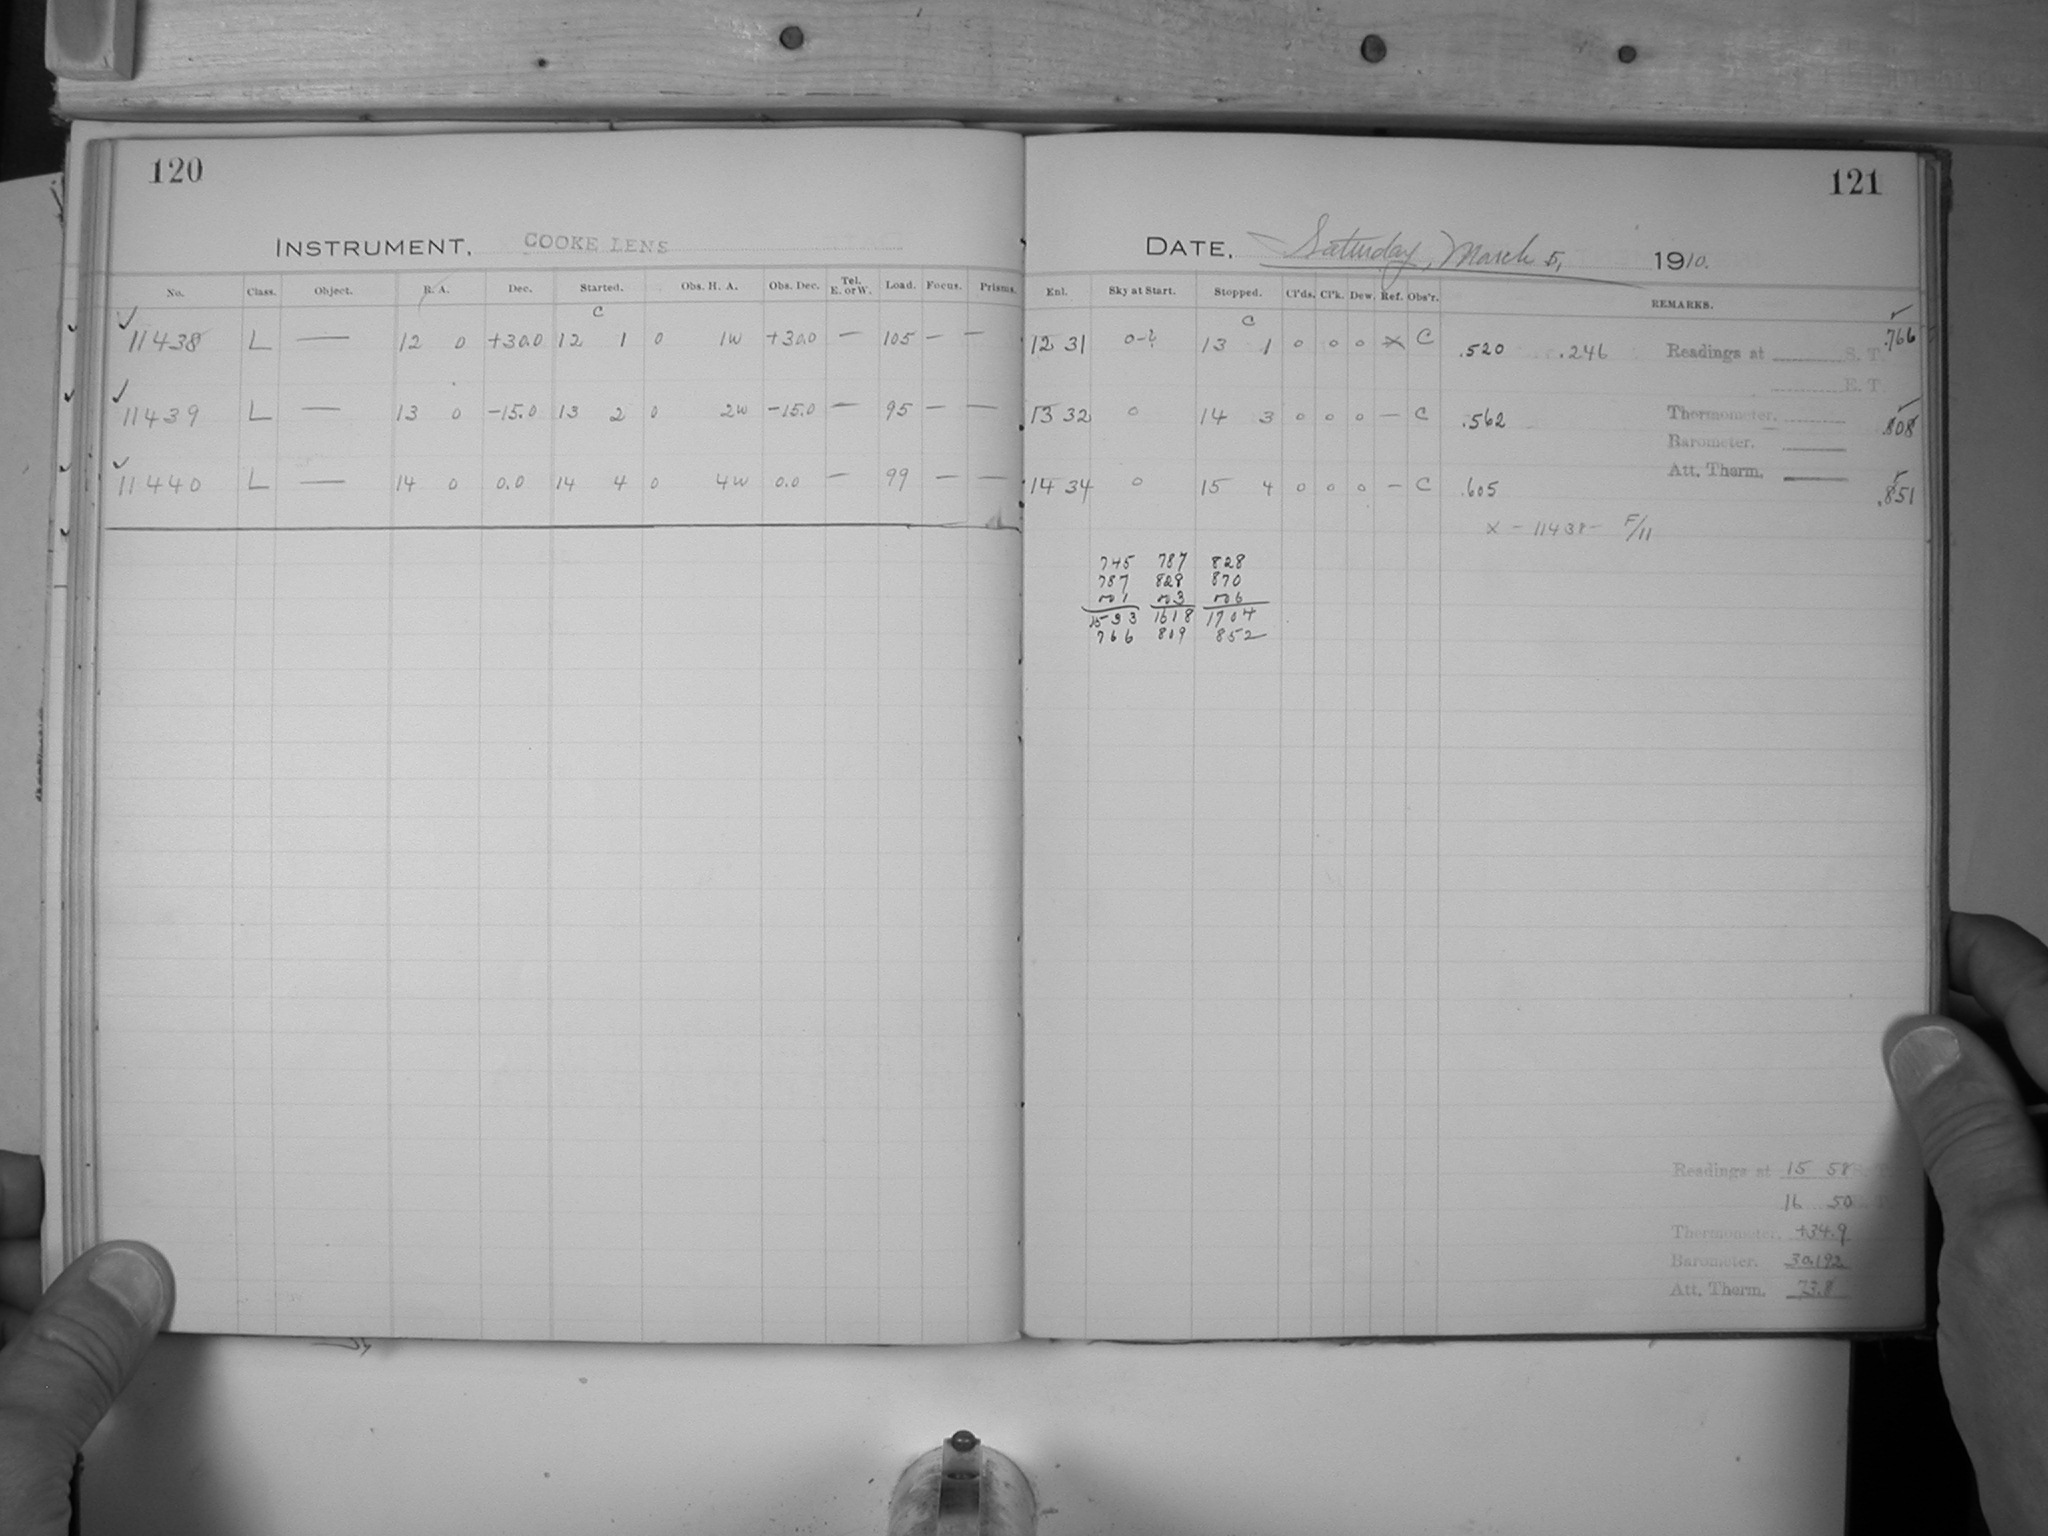 120
INSTRUMENT, COOKE LENS
No. Class. Object. R. A. Dec. Started. Obs. H. A. Obs. Dec. Tel. E. or W. Load. Focus. Prisms.
C
11438 L — 12 0 +30.0 12 1 0 1W +30.0 — 105 — —
11439 L — 13 0 -15.0 13 2 0 2W -15.0 — 95 — —
11440 L — 14 0 0.0 14 4 0 4W 0.0 — 99 — —
121
DATE, Saturday, March 5, 1910.
Enl. Sky at Start. Stopped. Cl'ds. Cl'k. Dew. Ref. Obs'r. REMARKS.
C
12 31 0-? 13 1 0 0 0 X C .520 .246 Readings at S. T. .766
E. T.
13 32 0 14 3 0 0 0 — C .562 Thermometer. .808
Barometer.
Att. Therm.
14 34 0 15 4 0 0 0 — C .605 .851
X - 11438 - F/11
745 787 828
787 828 870
1 3 6
1533 1618 1704
766 809 852
Readings at 15 58
16 50
Thermometer. +34.9
Barometer. 30.192
Att. Therm. 73.8